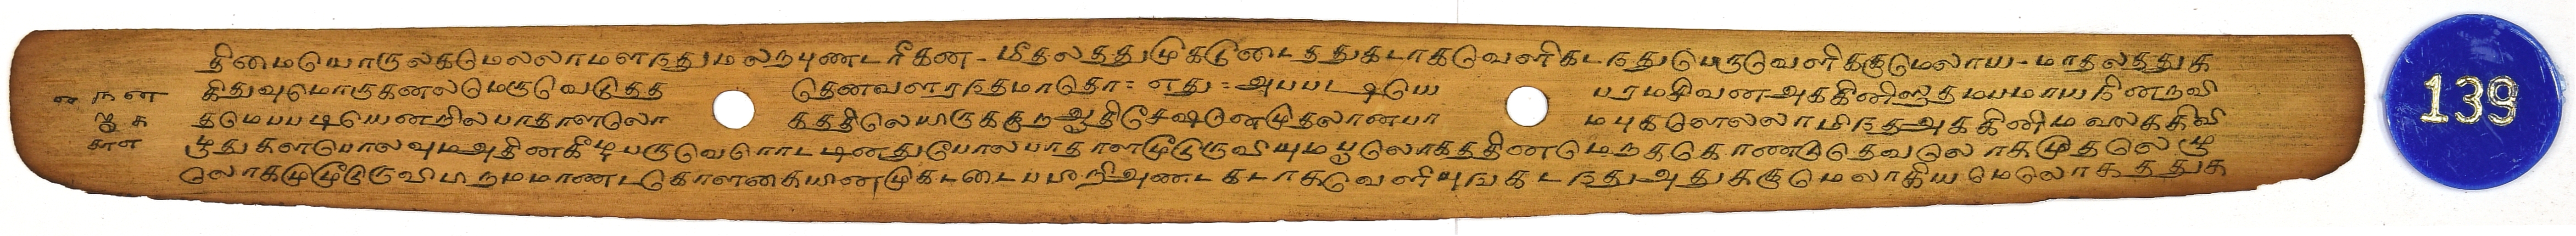 திமையொருலகமெலலாமளநதுமலறபுணடரீகன - மீதலததுமுகடுடைததுகடாகவெளிகடநதுபெருவெளிக்குமெலாய - மாதலததுக
கிதுவுமொருகனலமெருவெடுதத தெனவளரநதமாதொ : எது : அபபடியெ பரமசிவனஅககினிஜதமபமாயநினறவி
தமெபபடியெனறில பாதாளலொ கததிலெயிருககுறஆதிசேஷனமுதலானபா மபுகளெலலாமிநதஅககினிமலககிவி
ழுதுகளபொலவுமஅதினகீழபருவெரொடடினதுபோலபாதாளமூடுருவியுமபூலொகததினமெறகொணடுதெவலொகமுதலெழு
லொகமுமூடுருவிபிறமமாணடகொளகையினமுகடடைபபீறிஅணடகடாகவெளியுஙகடநதுஅதுககுமெலாகியமெலொகததுக
139